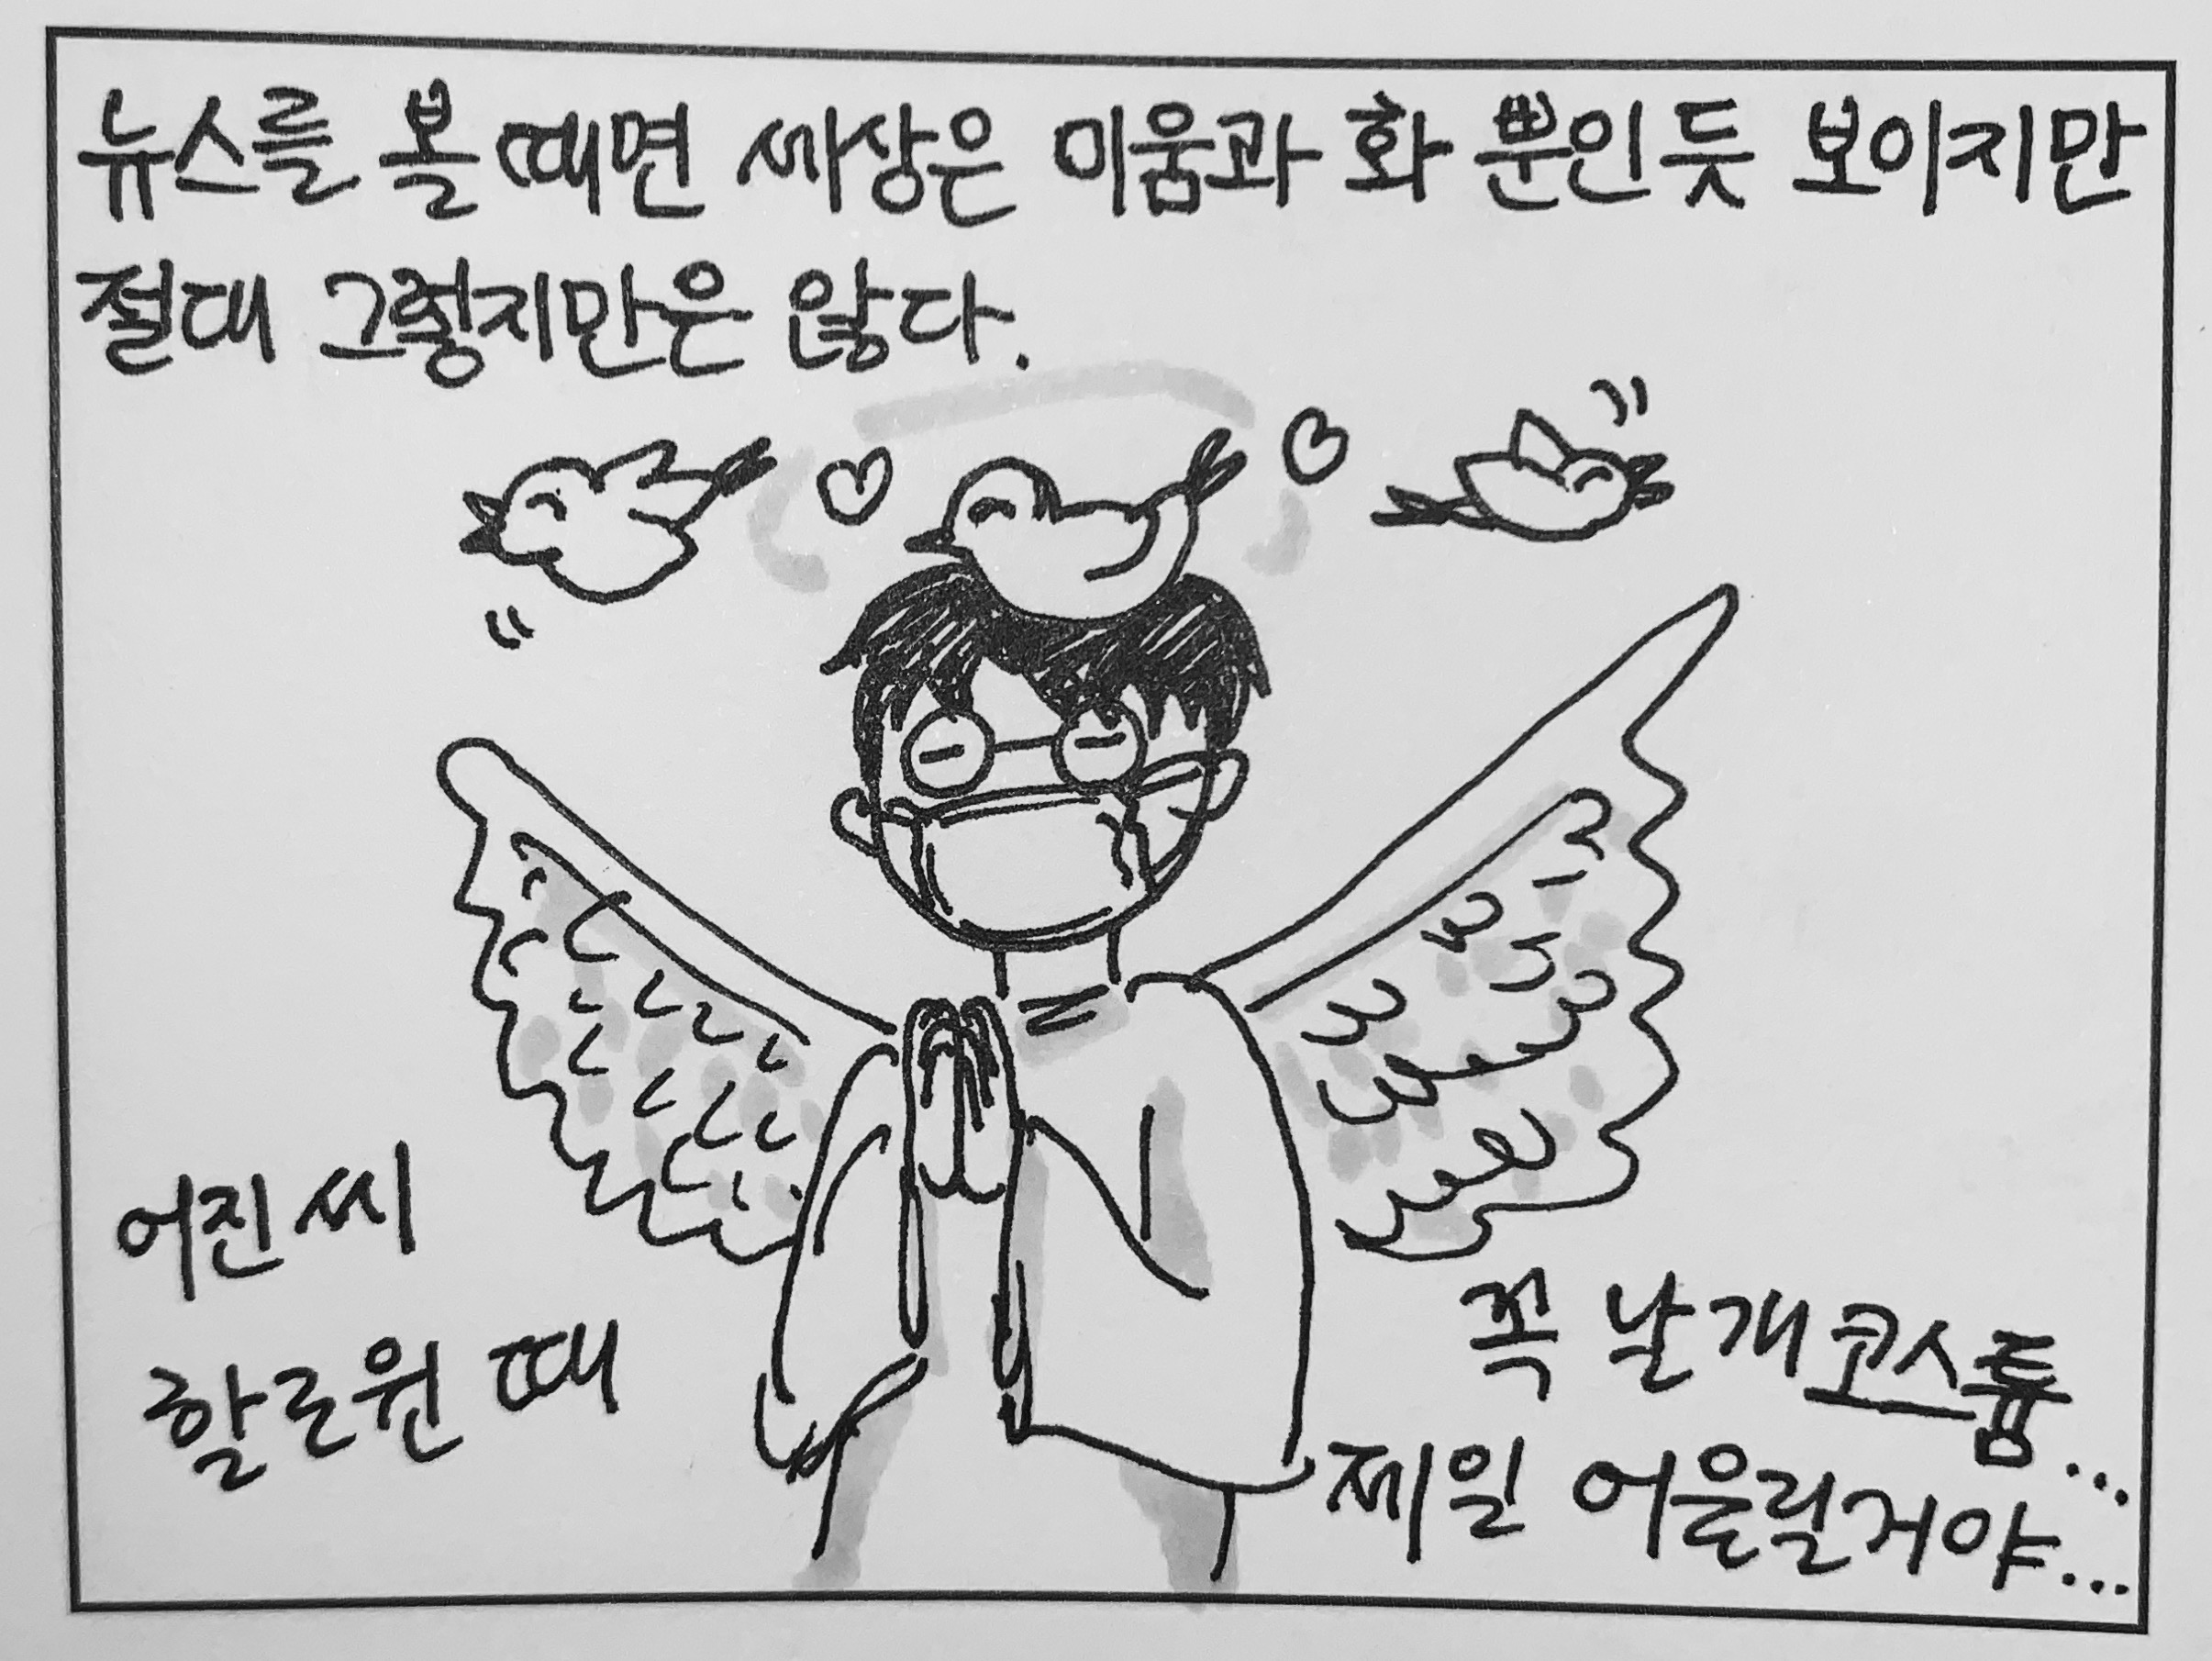 뉴스를 볼 때면 세상은 미움과 화 뿐인 듯 보이지만
절대 그렇지만은 않다.
어진 씨
할로윈 때
꼭 날개 코스튬...
제일 어울릴거야...